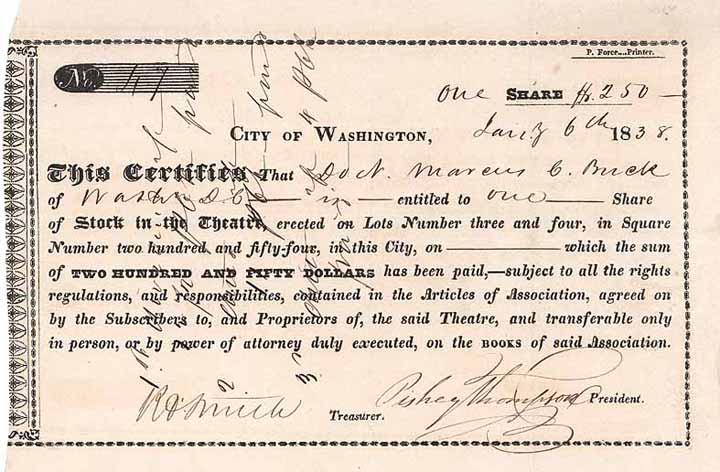 P. Force....Printer.
No. 47
One SHARE $250
CITY OF WASHINGTON, Jany 6th 1838.
This Certifies That Doct. Marcus C. Buck
of Washn D C is entitled to one Share
of Stock in the Theatre, erected on Lots Number three and four, in Square
Number two hundred and fifty-four, in this City, on which the sum
of TWO HUNDRED AND FIFTY DOLLARS has been paid,—subject to all the rights
regulations, and responsibilities, contained in the Articles of Association, agreed on
by the Subscribers to, and Proprietors of, the said Theatre, and transferable only
in person, or by power of attorney duly executed, on the BOOKS of said Association.
Pishey Thompson President.
Treasurer.
1
2
3